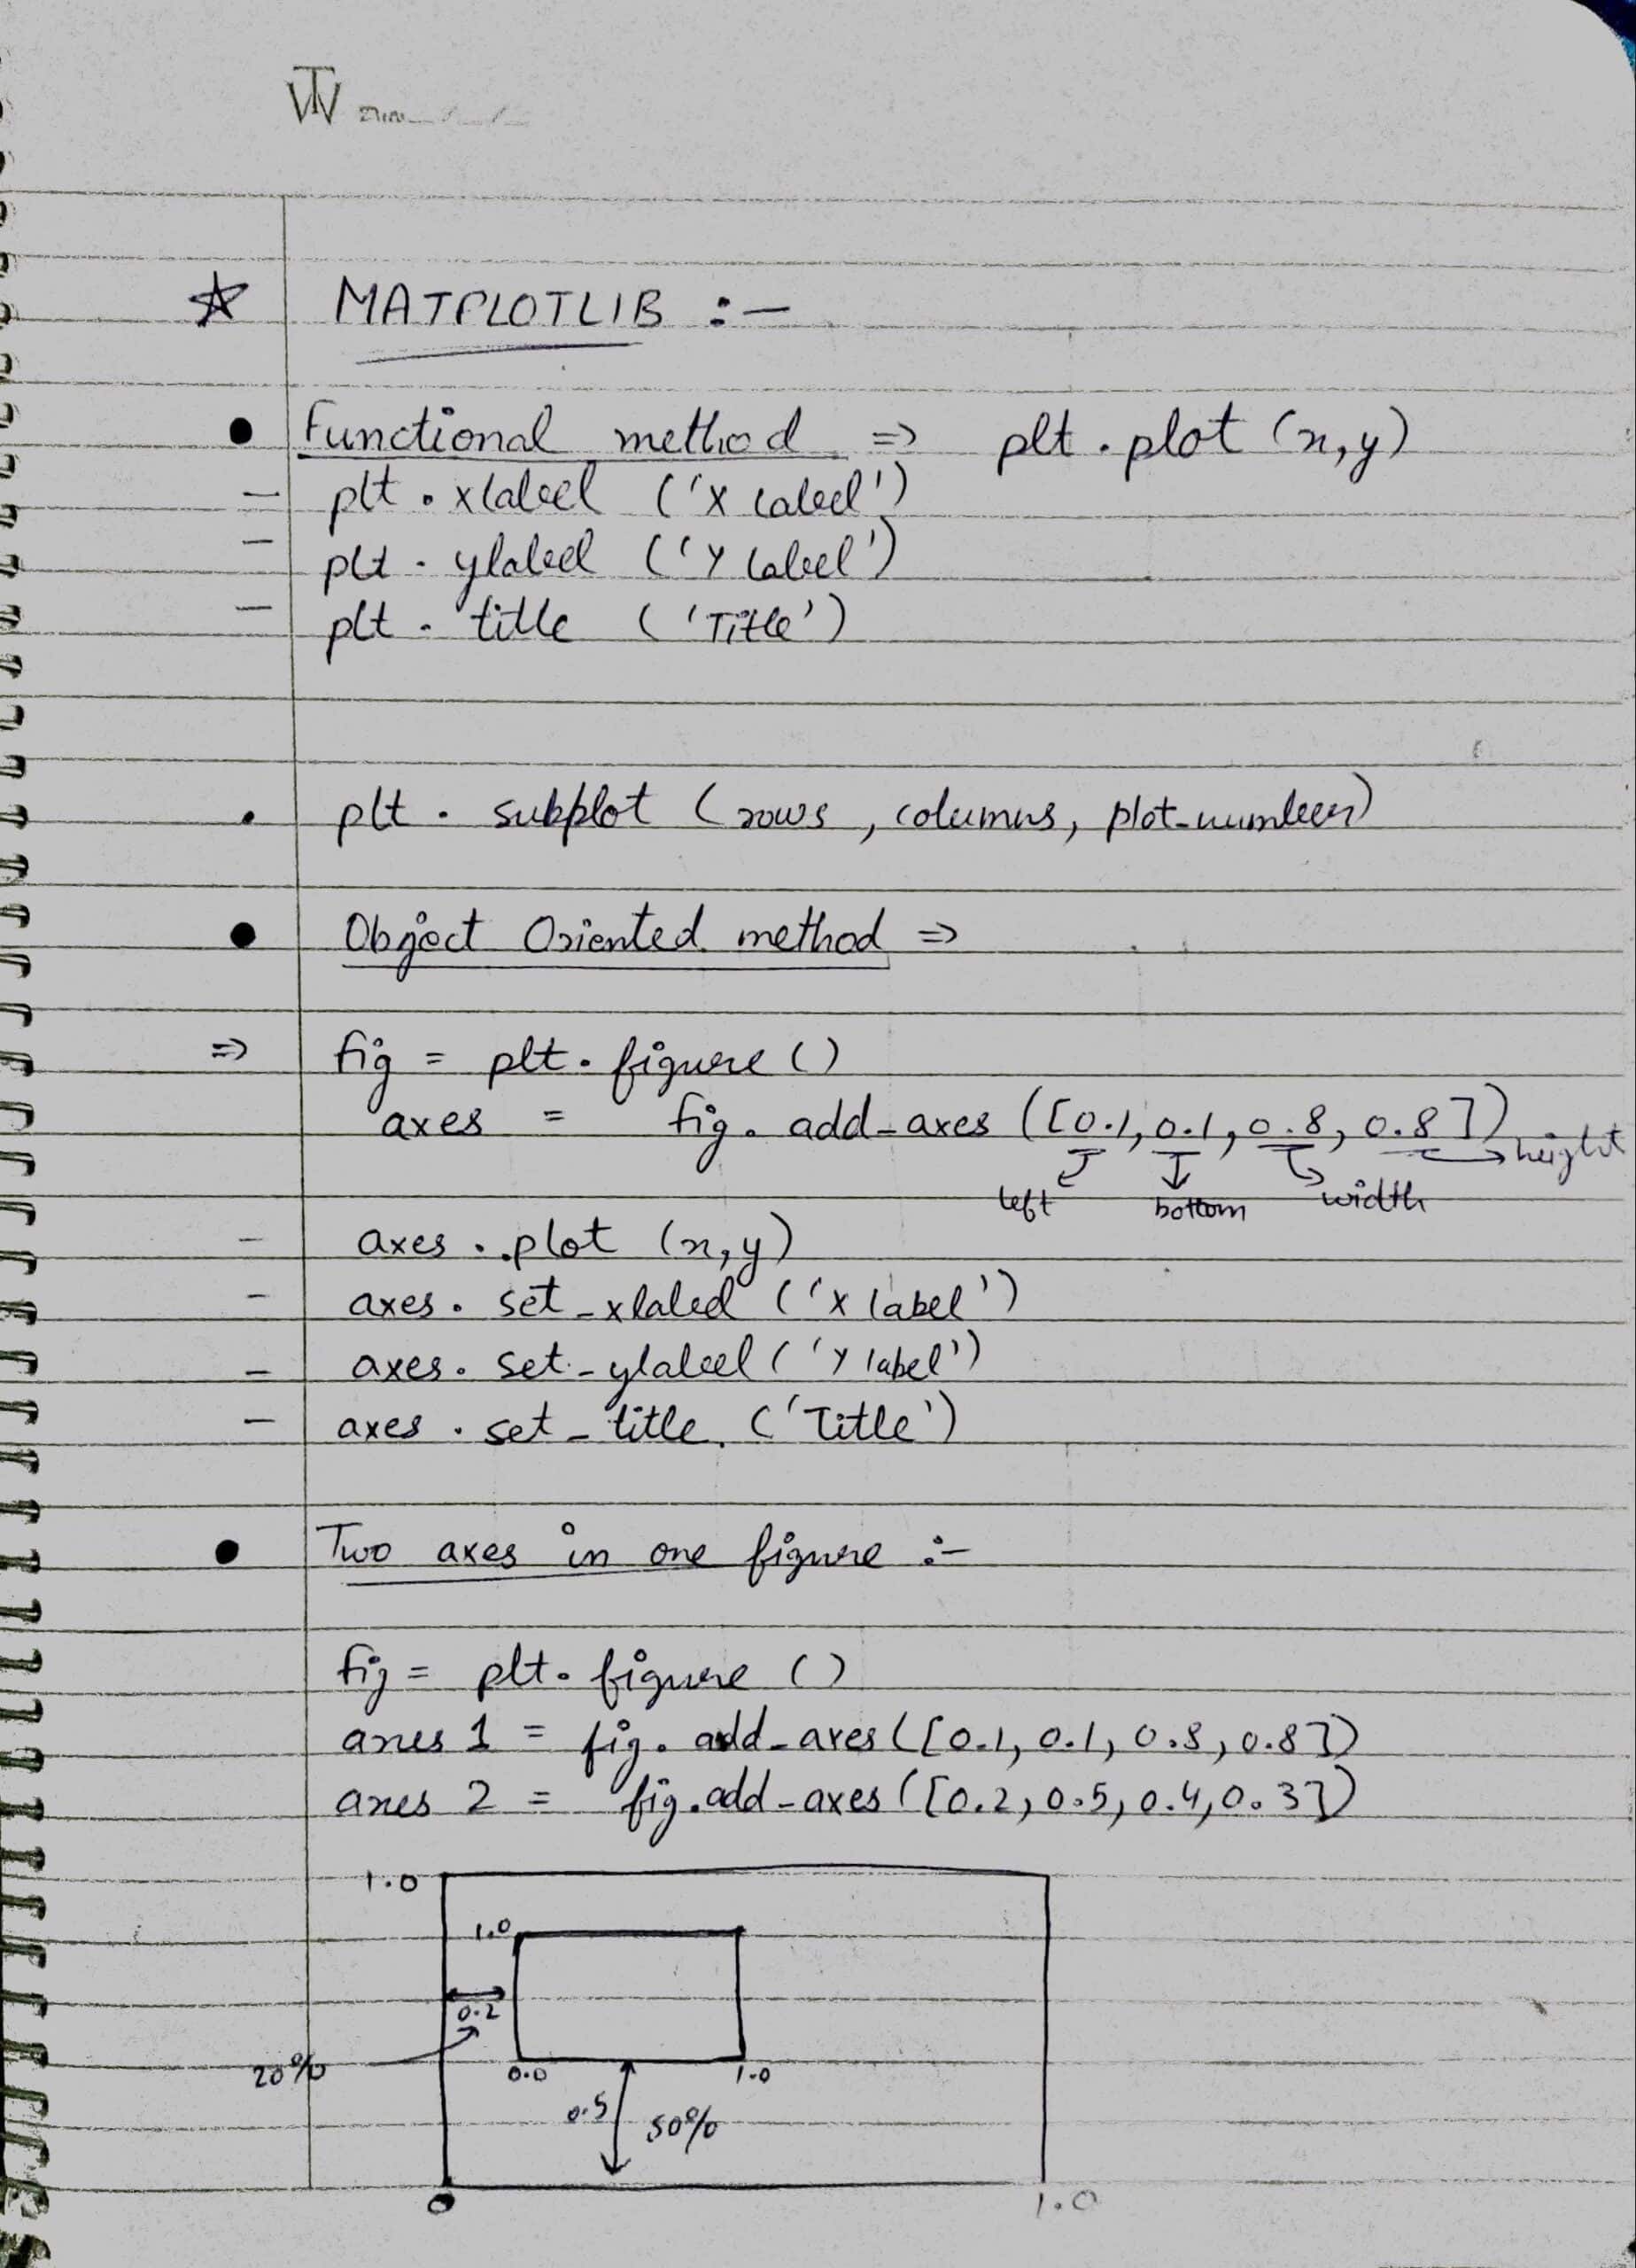 ☆ MATPLOTLIB :-
• Functional method => plt.plot (x,y)
- plt.xlabel ('X label')
- plt.ylabel ('Y label')
- plt.title ('Title')
• plt.subplot (rows, columns, plot-number)
• Object Oriented method =>
=> fig = plt.figure ()
axes = fig.add_axes ([0.1, 0.1, 0.8, 0.8])
left bottom width height
- axes.plot (x,y)
- axes.set_xlabel ('X label')
- axes.set_ylabel ('Y label')
- axes.set_title ('Title')
• Two axes in one figure :-
fig = plt.figure ()
axes 1 = fig.add_axes ([0.1, 0.1, 0.8, 0.8])
axes 2 = fig.add_axes ([0.2, 0.5, 0.4, 0.3])
1.0
1.0
0.2
20%
0.0 1.0
0.5 50%
0 1.0